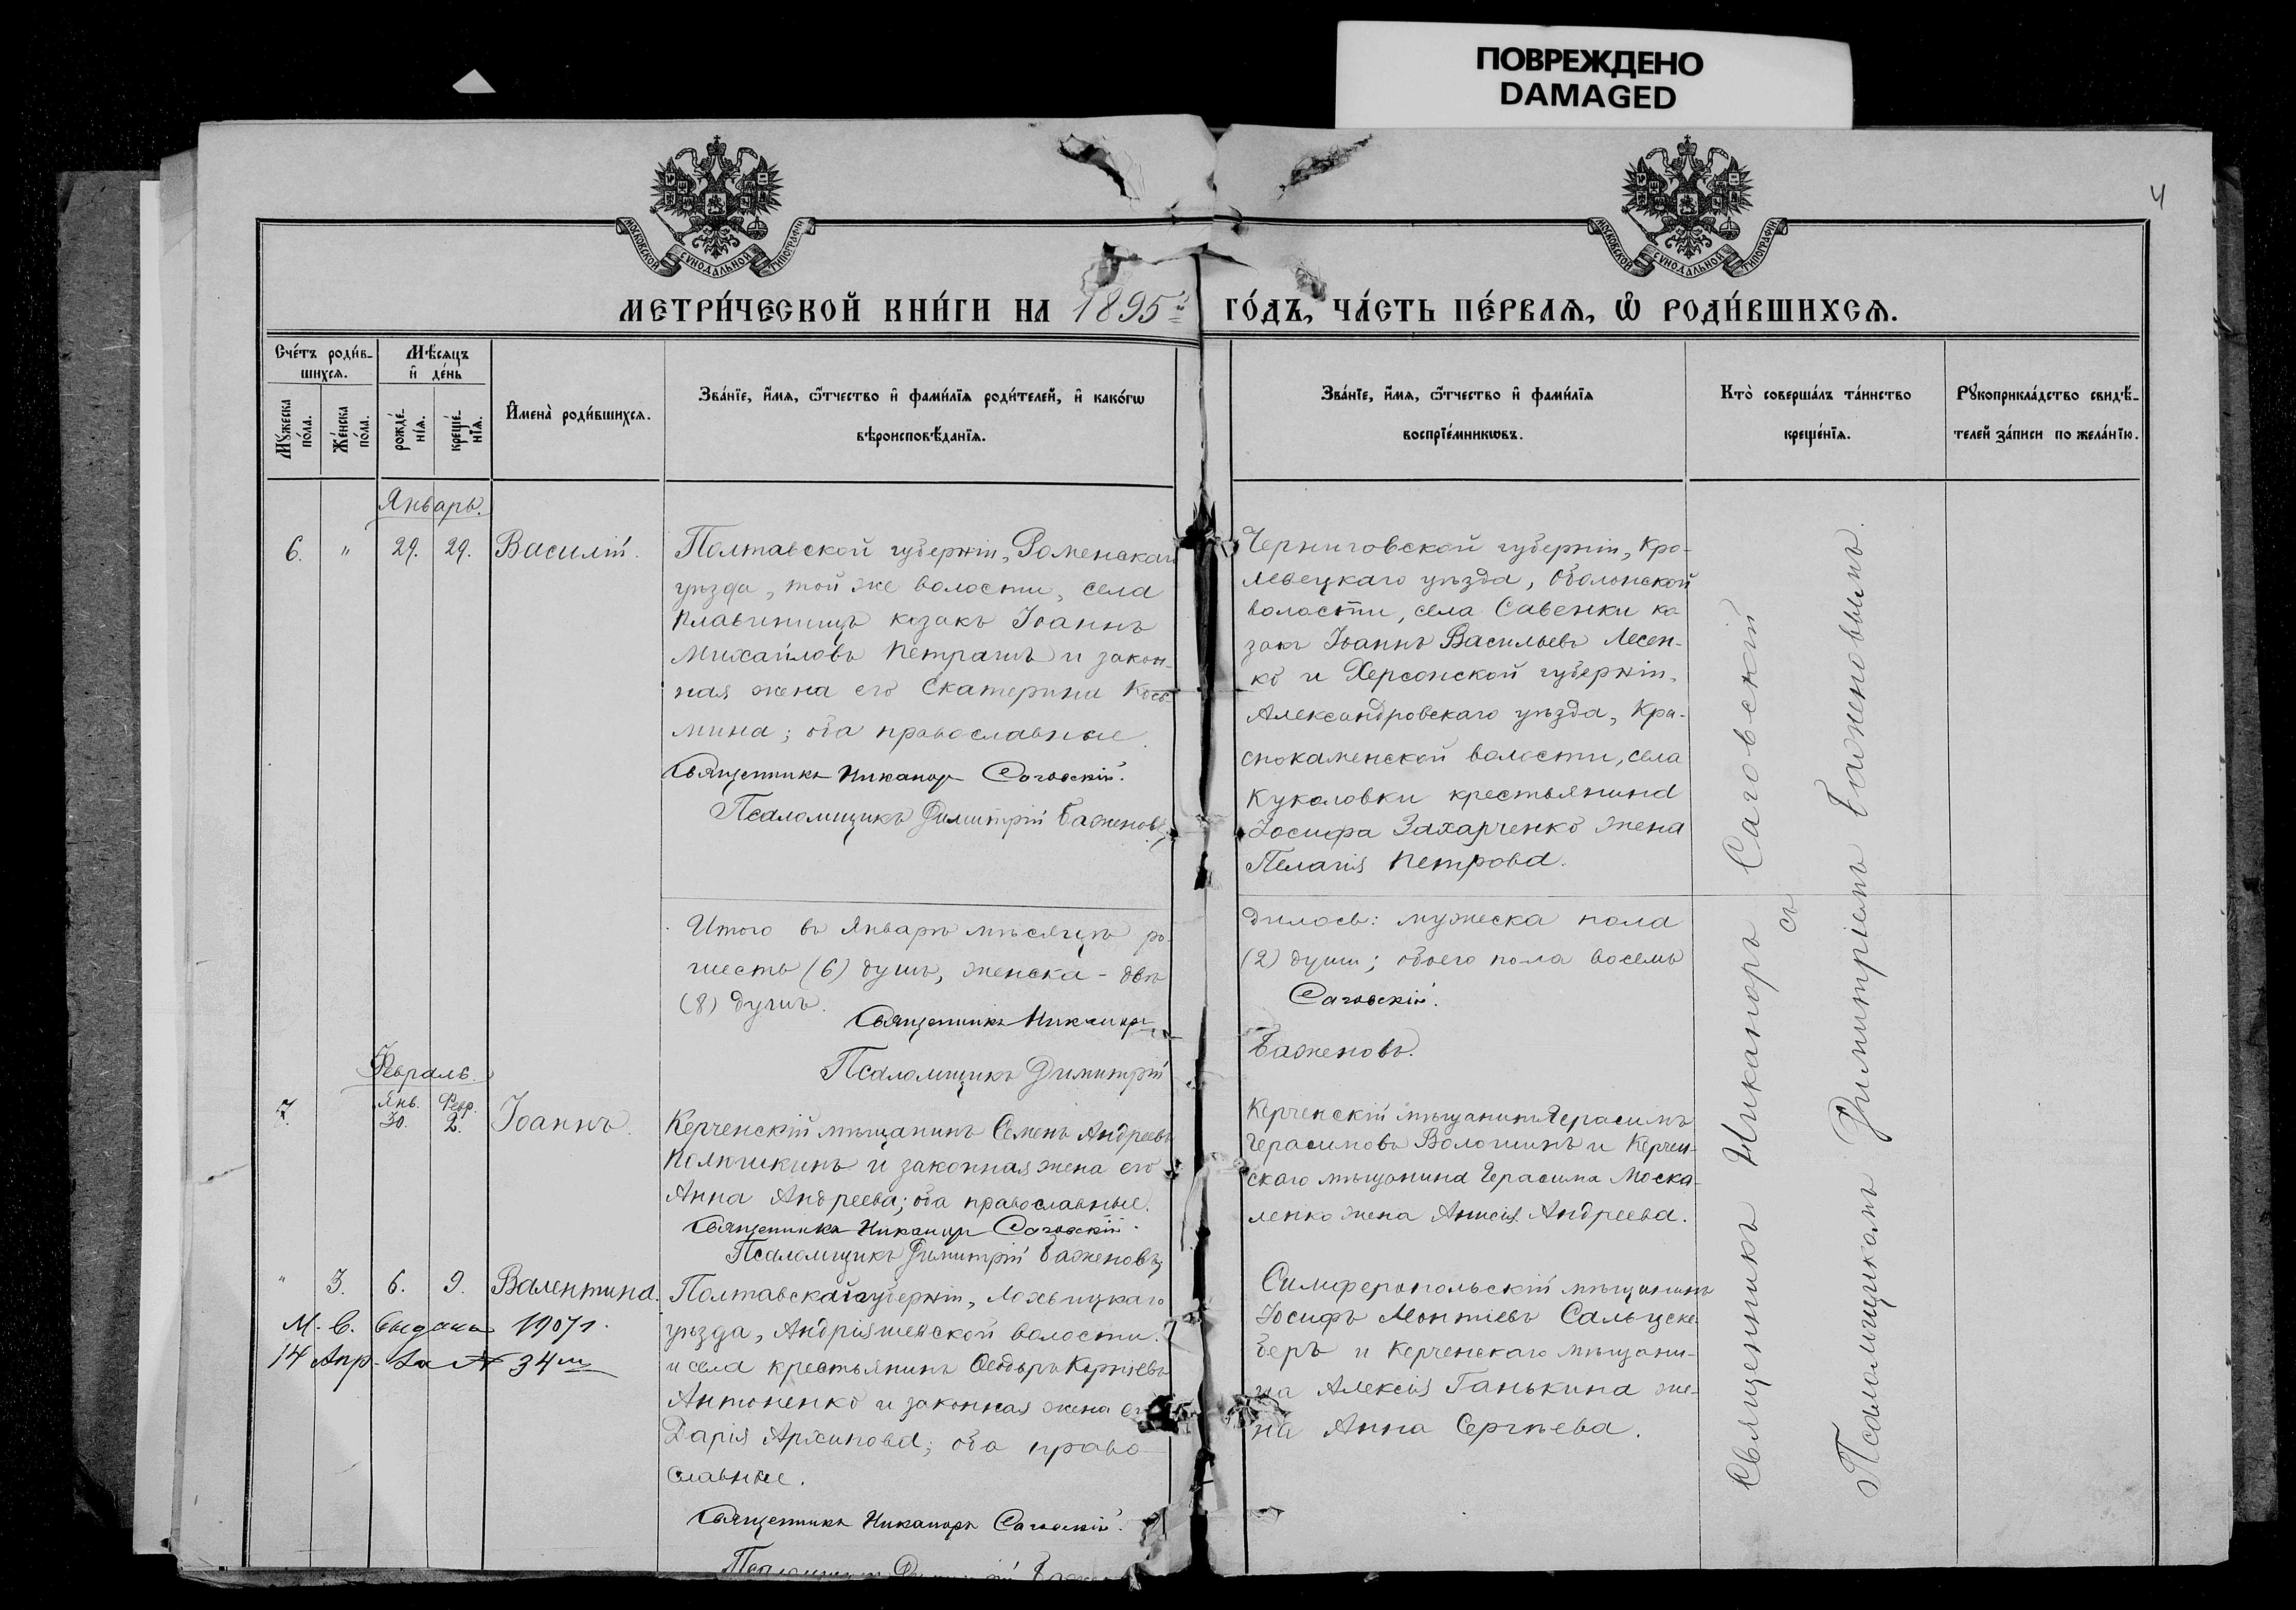 ПОВРЕЖДЕНО
DAMAGED
4
МОСКОВСКОЙ СѴНОДАЛЬНОЙ ТИПОГРАФІИ
МОСКОВСКОЙ СѴНОДАЛЬНОЙ ТИПОГРАФІИ
МЕТРИ́ЧЕСКОЙ КНИ́ГИ НА 1895й ГО́ДЪ, ЧА́СТЬ ПЕ́РВАѦ, Ѡ҆ РОДИ́ВШИХСѦ.
Сче́тъ роди́в-
шихсѧ.
Мѣ́сѧцъ
и҆ де́нь
Мꙋ́жеска
по́ла.
Же́нска
по́ла.
рожде́-
нїѧ.
креще́-
нїѧ.
И҆мена̀ роди́вшихсѧ.
Зва́нїе, и҆́мѧ, ѻ҆́тчество и҆ фами́лїѧ роди́телей, и҆ како́гѡ
вѣроисповѣ́данїѧ.
Зва́нїе, и҆́мѧ, ѻ҆́тчество и҆ фами́лїѧ
воспрїе́мникѡвъ.
Кто̀ соверша́лъ та́инство
креще́нїѧ.
Рꙋкоприкла́дство свидѣ́-
телей за́писи по жела́нїю.
Январь.
6. " 29. 29. Василій.
Полтавской губерніи, Роменскаго
уѣзда, той же волости, села
Плавинищъ козакъ Іоаннъ
Михайловъ Петрашъ и закон-
ная жена его Екатерина Кось-
мина; оба православные.
Священникъ Никаноръ Саговскій.
Псаломщикъ Димитрій Баженовъ
Черниговской губерніи, Кро-
левецкаго уѣзда, Оболонской
волости, села Савенки ка-
закъ Іоаннъ Васильевъ Лесен-
ко и Херсонской губерніи,
Александровскаго уѣзда, Кра-
снокаменской волости, села
Куколовки крестьянина
Іосифа Захарченко жена
Пелагія Петрова.
Итого въ Январѣ мѣсяцѣ ро-
дилось: мужеска пола
шесть (6) душъ, женска - двѣ
(2) души; обоего пола восемь
(8) душъ.
Священникъ Никаноръ
Саговскій.
Псаломщикъ Димитрій
Баженовъ.
Февраль.
7. Янв. 30. Февр. 2. Іоаннъ.
Керченскій мѣщанинъ Семенъ Андреевъ
Колюшкинъ и законная жена его
Анна Андреева; оба православные.
Священникъ Никаноръ Саговскій.
Псаломщикъ Димитрій Баженовъ
Керченскій мѣщанинъ Герасимъ
Герасимовъ Волошинъ и Керчен-
скаго мѣщанина Герасима Моска-
ленко жена Анисія Андреева.
" 3. 6. 9. Валентина.
М. в. выдана 1907 г.
14 Апр. за № 34м
Полтавской губерніи, Лохвицкаго
уѣзда, Андріяшевской волости
и села крестьянинъ Ѳеодоръ Корніевъ
Антоненко и законная жена его
Дарія Архипова; оба право-
славные.
Священникъ Никаноръ Саговскій.
Псаломщикъ Димитрій Баженовъ
Симферопольскій мѣщанинъ
Іосифъ Монтіевъ Сальцске-
беръ и Керченскаго мѣщани-
на Алексія Ганькина же-
на Анна Сергѣева.
Священникъ Никаноръ Саговскій
съ
Псаломщикомъ Димитріемъ Баженовымъ.